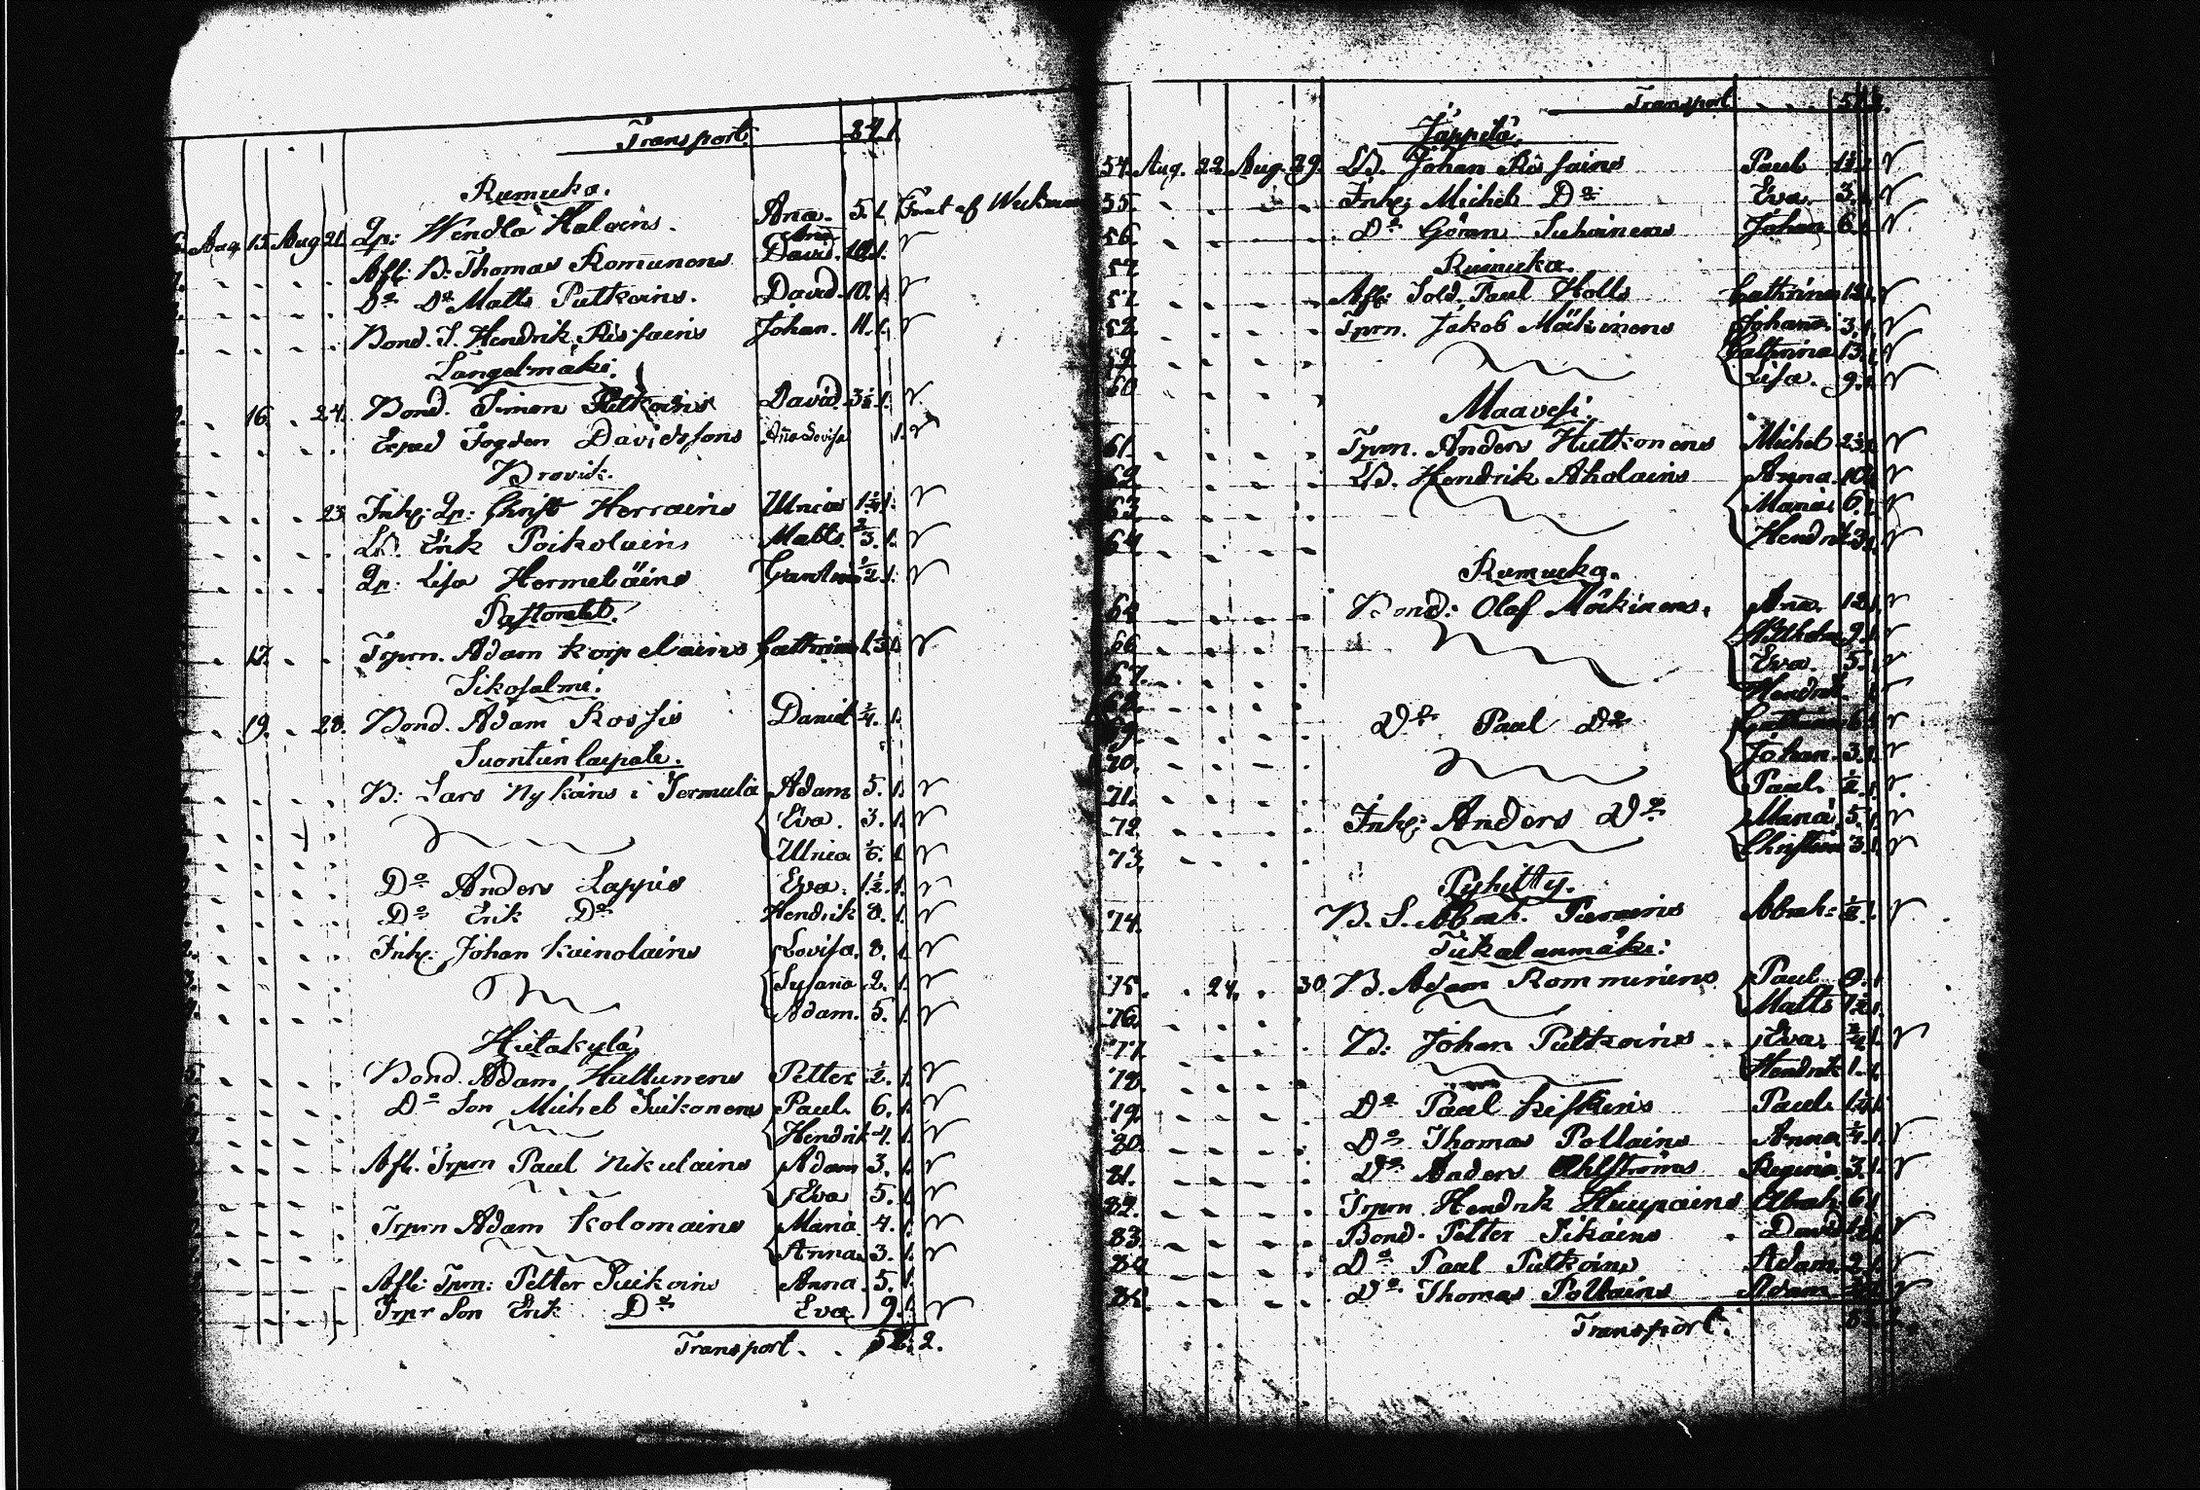 Transport.
Rumuka.
Aug 15 Aug 21. Qp: Wendla Halvins. Ana. 5. 1.
Afk: B: Thomas Romunens David. 10. 1.
Do Do Matts Putkoins. David. 10. 1.
Bond. S. Hendrik Rissains Johan. 11. 1.
Längelmäki.
16. 24. Bond. Simon Putkoins David 3½ 1.
Exped Fogden Davidssons Aña Lovisa 1.
Brovik.
23 Inh: Qp: Christ Herrains Ulrica 1¼ 1.
LB. Erik Poikolains Matts 1.
Qp: Lisa Hermeläins 1.
Pastoratet.
17. Trprn. Adam Korpelains Cathrina
Sikosalmi.
19. 28. Bond. Adam Rossis Daniel ¼ 1.
Suontienlaipale.
B: Lars Nykäins i Jermulä Adam 5. 1.
Eva. 3. 1.
Ulrica 1
Do Anders Lappis Eva. 1½ 1.
Do Erik Do Hendrik 8. 1.
Inh: Johan Kainolains Lovisa. 8. 1.
Susana 2. 1.
Adam. 5. 1.
Hietakylä
Bond. Adam Hultunens Petter ½. 1.
Do Son Michel Suikonens Paul. 6. 1.
Hendrik 4. 1.
Afk. Trprn Paul Nikulains Adam 3. 1.
Eva 5. 1.
Trprn Adam Kolomains Maria 4. 1.
Anna 3. 1.
Afk: Tprn: Petter Puikoins Anna. 5. 1.
Trpr Son Erik Do Eva 9. 1.
Transport. . 52. 2.
Transport
Jäppilä.
54. Aug. 22 Aug. 29. LB. Johan Rissains Paul
55. Inh: Michel Do Eva 3.
56. Do Göran Suhoinens Johan 6
57 Rumuka.
57 Afk: Sold. Paul Holls Cathrina
58 Tprn. Jakob Mäkinens Johan. 3.
59 Cathrina 13.
60 Lisa. 9.
Maavesi.
61. Tprn. Anders Hutkonens Michel
62 LB. Hendrik Aholains Anna 10
63 Maria 6.
64 Hendrik 3
Rumuka.
Bond: Olof Mökinens. Ana. 12
66 Wilhelm 9.
67. Eva. 5.
68. Hendrik
69. Do Paul Do
70. Johan. 3.
71. Paul.
72. Inh: Anders Do Maria 5.
73. Christina 3.
Pyhitty.
74. B. S. Abrah. Abrah:
Tukalanmäki:
75. 24. 30 B. Adam Romminens Paul 9.
76. Matts
77. B: Johan Putkoins Eva.
78. Hendrik 1.
79. Do Paul Kiskins Paul.
80. Do Thomas Pollains Anna ¼ 1.
81. Do Anders Ahlströms Regina 3. 1.
82. Trprn Hendrik Huupains Abrah: 6
83. Bond. Petter Sikäins David
84 Do Paul Putkoins Adam. 2.
85. Do Thomas Pollains Adam
Transport.